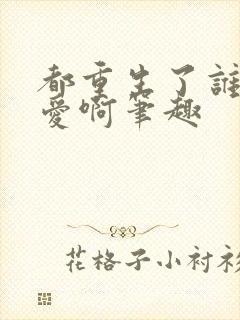 都重生了誰
愛啊筆趣
花格子小衬衫